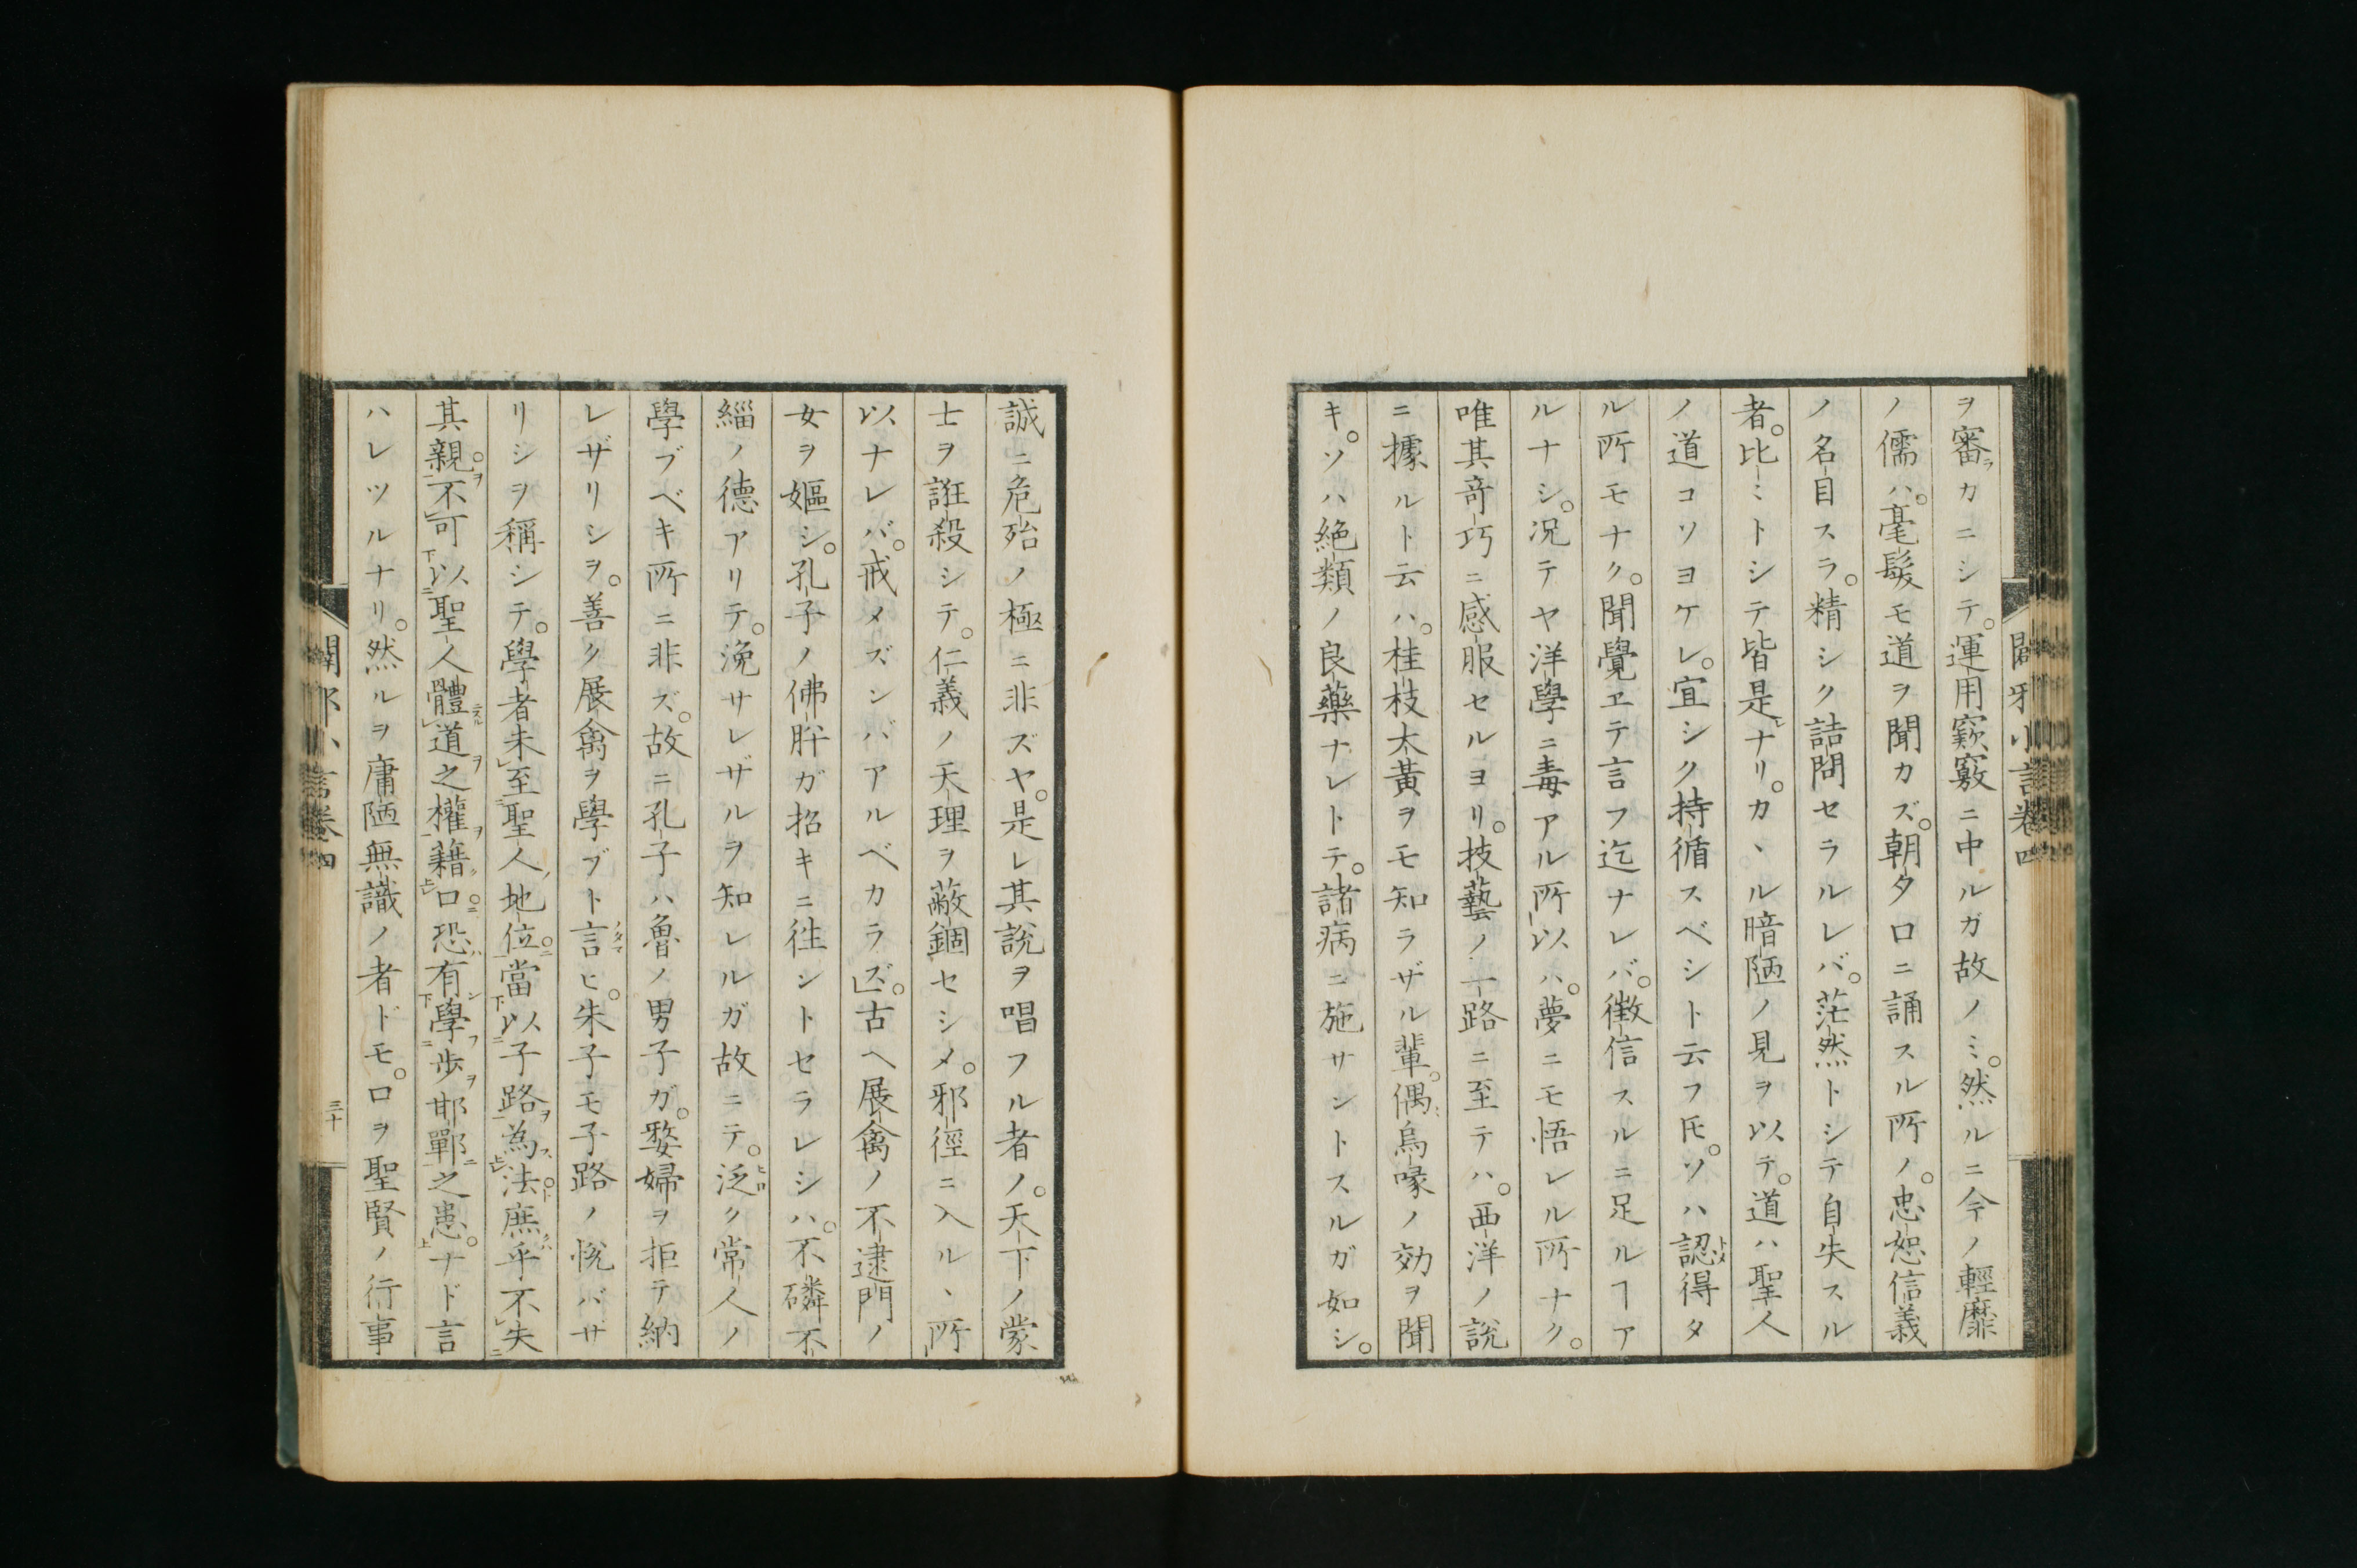 ヲ審ラカニシテ。運用窾竅ニ中ルガ故ノミ。然ルニ今ノ輕靡
ノ儒ハ。毫髮モ道ヲ聞カズ。朝夕口ニ誦スル所ノ。忠恕信義
ノ名目スラ。精シク詰問セラルレバ。茫然トシテ自失スル
者。比ミトシテ皆是レナリ。カヽル暗陋ノ見ヲ以テ。道ハ聖人
ノ道コソヨケレ。宜シク持循スベシト云フ𪜈。ソハ認トメ得タ
ル所モナク。聞覺ヱテ言フ迄ナレバ。徴信スルニ足ルヿア
ルナシ。况テヤ洋學ニ毒アル所以ハ。夢ニモ悟レル所ナク。
唯其竒巧ニ感服セルヨリ。技藝ノ一路ニ至テハ。西洋ノ說
ニ據ルト云ハ。桂枝大黃ヲモ知ラザル輩。偶〻烏喙ノ効ヲ聞
キ。ソハ絶類ノ良藥ナレトテ。諸病ニ施サントスルガ如シ。
闢邪小言卷四
誠ニ危殆ノ極ニ非ズヤ。是レ其說ヲ唱フル者ノ。天下ノ蒙
士ヲ誑殺シテ。仁義ノ天理ヲ蔽錮セシメ。邪徑ニ入ルヽ所
以ナレバ。戒メズンバアルベカラズ。古ヘ展禽ノ不逮門ノ
女ヲ嫗シ。孔子ノ佛肸ガ招キニ徃ントセラレシハ。不磷不
緇ノ德アリテ。浼サレザルヲ知レルガ故ニテ。泛ヒロク常人ノ
學ブベキ所ニ非ズ。故ニ孔子ハ魯ノ男子ガ。嫠婦ヲ拒テ納
レザリシヲ。善ク展禽ヲ學ブト言ノタマヒ。朱子モ子路ノ悅バザ
リシヲ稱シテ。學者未至聖人ノ地位。當以子路ヲ為ス法ト庶クハ乎不失
其親ヲ不可以聖人體ニスル道ヲ之權ヲ藉ク口ニ恐ハ有ン學フ歩ヲ邯鄲ニ之患。ナド言
ハレツルナリ。然ルヲ庸陋無識ノ者ドモ。口ヲ聖賢ノ行事
闢邪小言卷四
三十